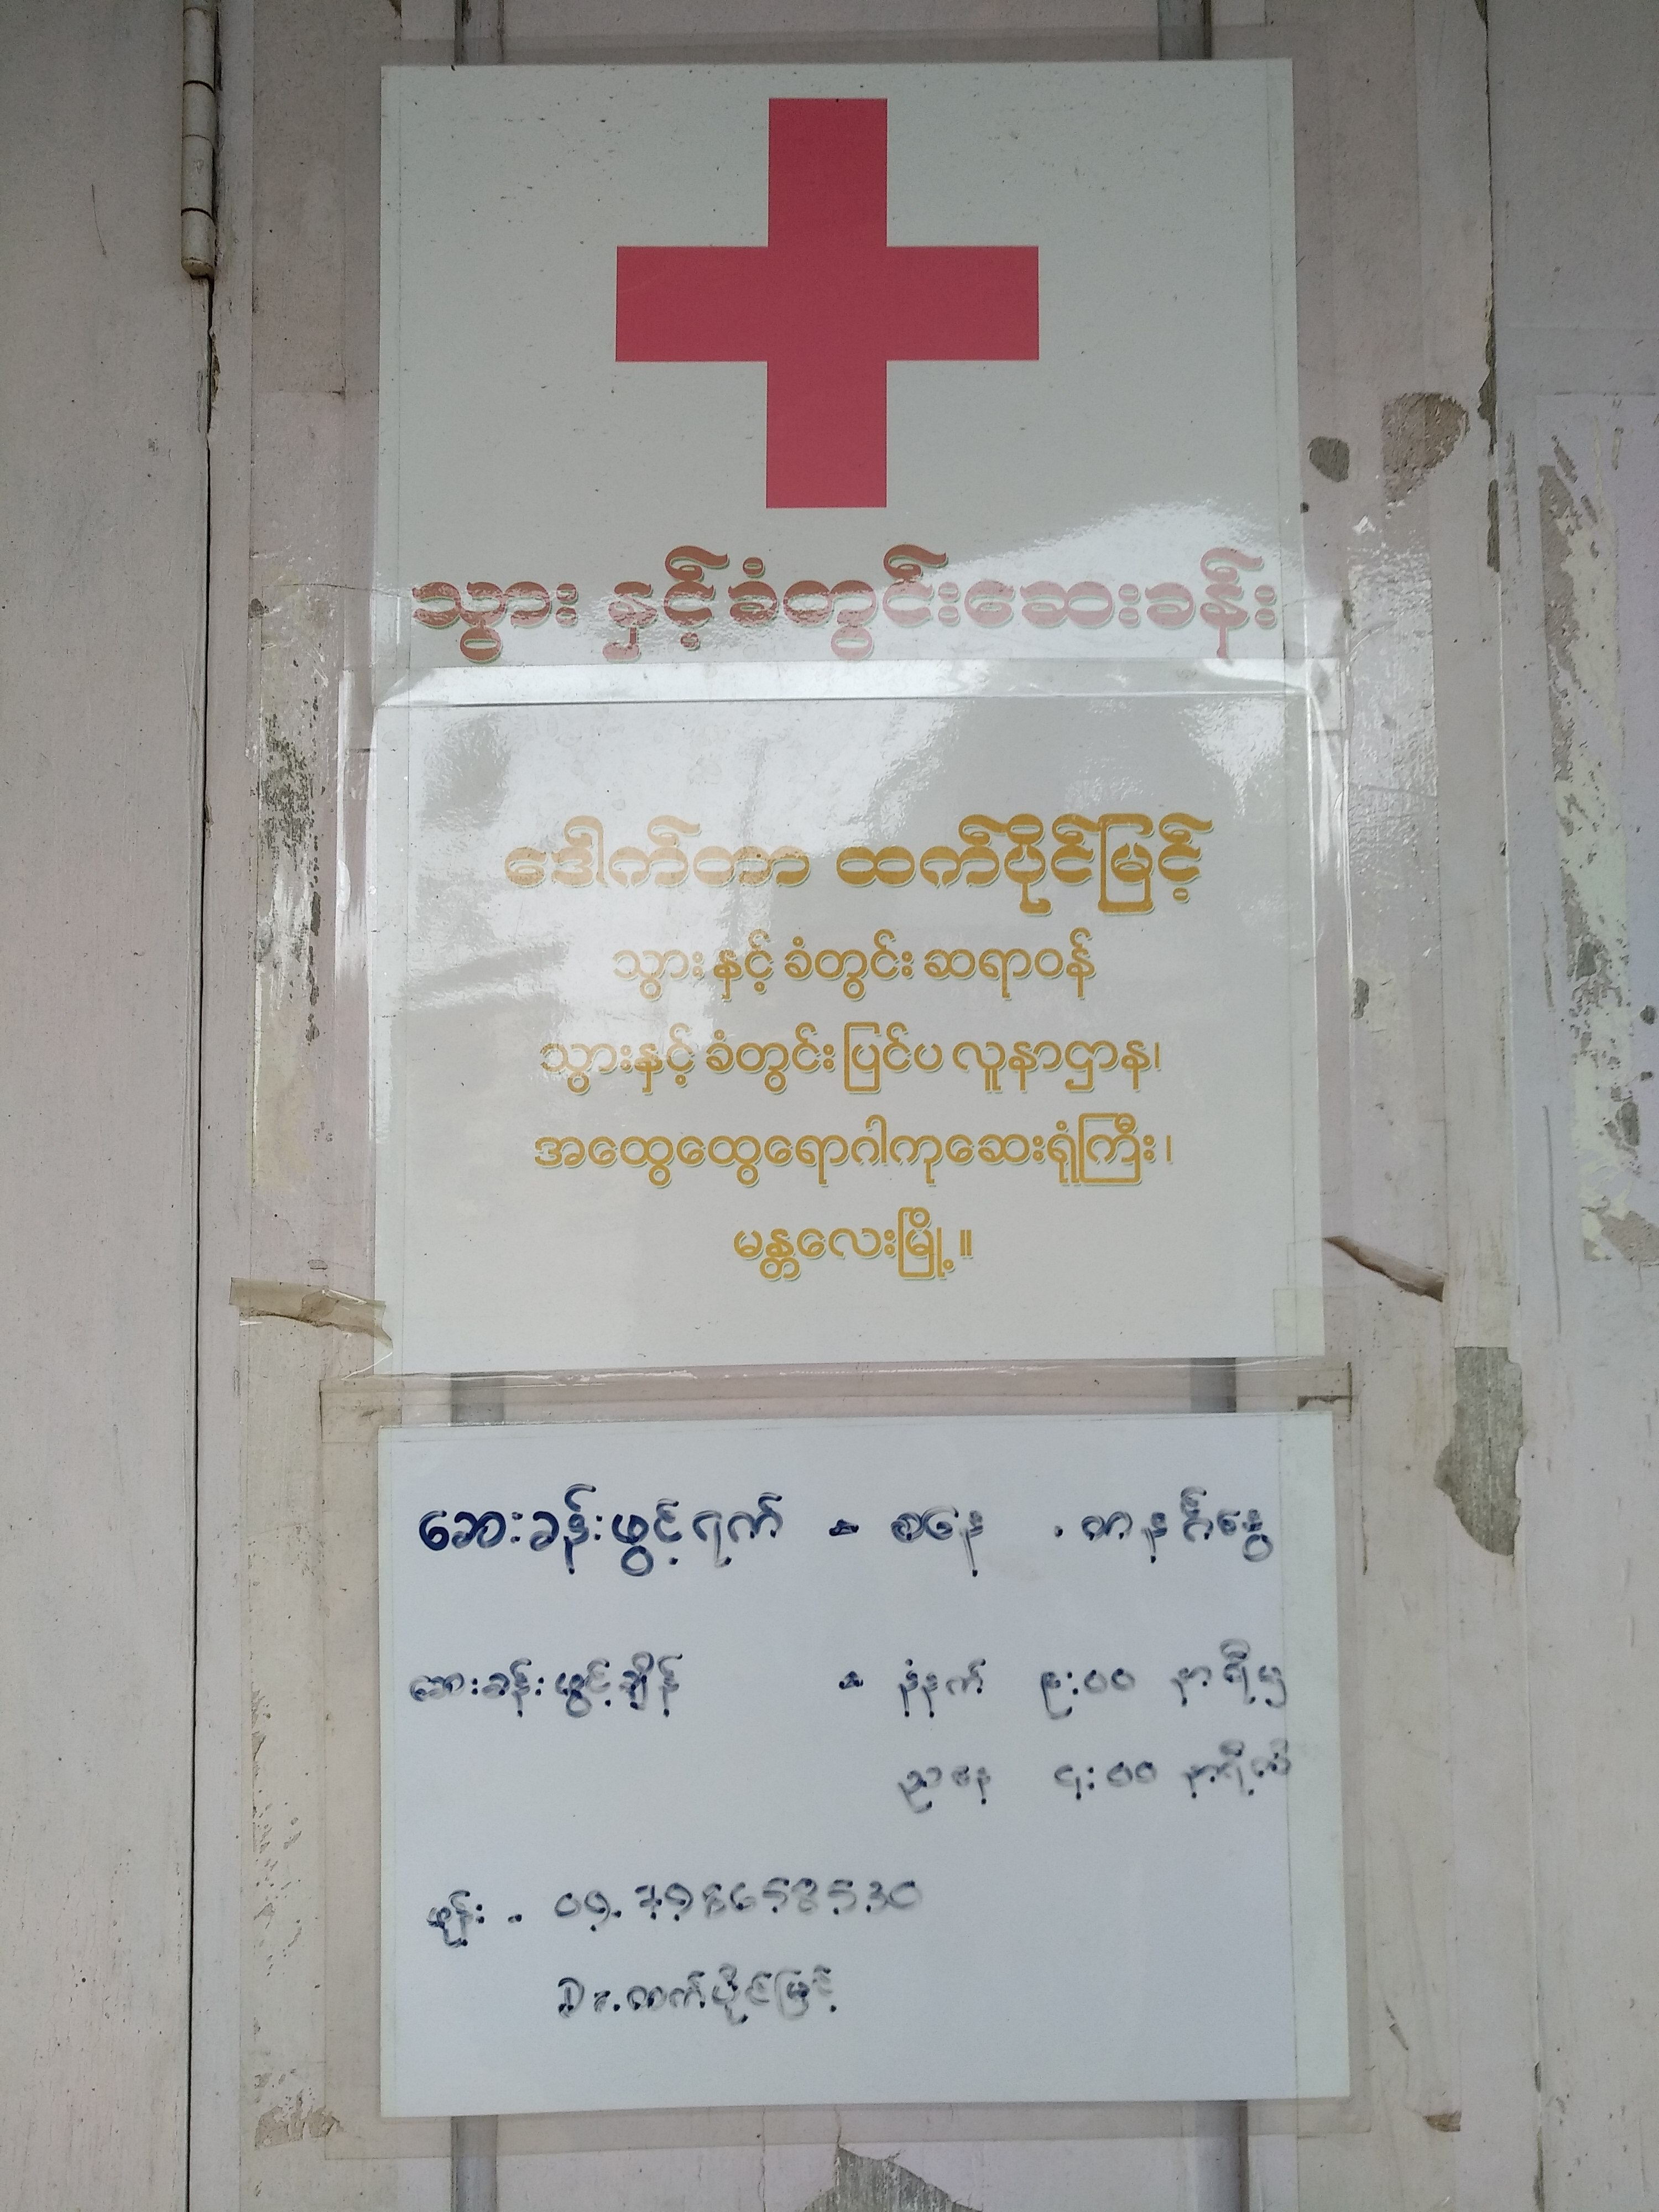 သွား နှင့်ခံတွင်းဆေးခန်း
ဒေါက်တာ ထက်ပိုင်မြင့်
သွားနှင့် ခံတွင်း ဆရာဝန်
သွားနှင့် ခံတွင်း ပြင်ပ လူနာဌာန၊
အထွေထွေရောဂါကုဆေးရုံကြီး၊
မန္တလေးမြို့။
ဆေးခန်းဖွင့်ရက် - စနေ ၊ တနင်္ဂနွေ
ဆေးခန်းဖွင့်ချိန် - နံနက် ၉:၀၀ နာရီမှ
ညနေ ၄:၀၀ နာရီထိ
ဖုန်း - 09.798658530
Dr.ထက်ပိုင်မြင့်